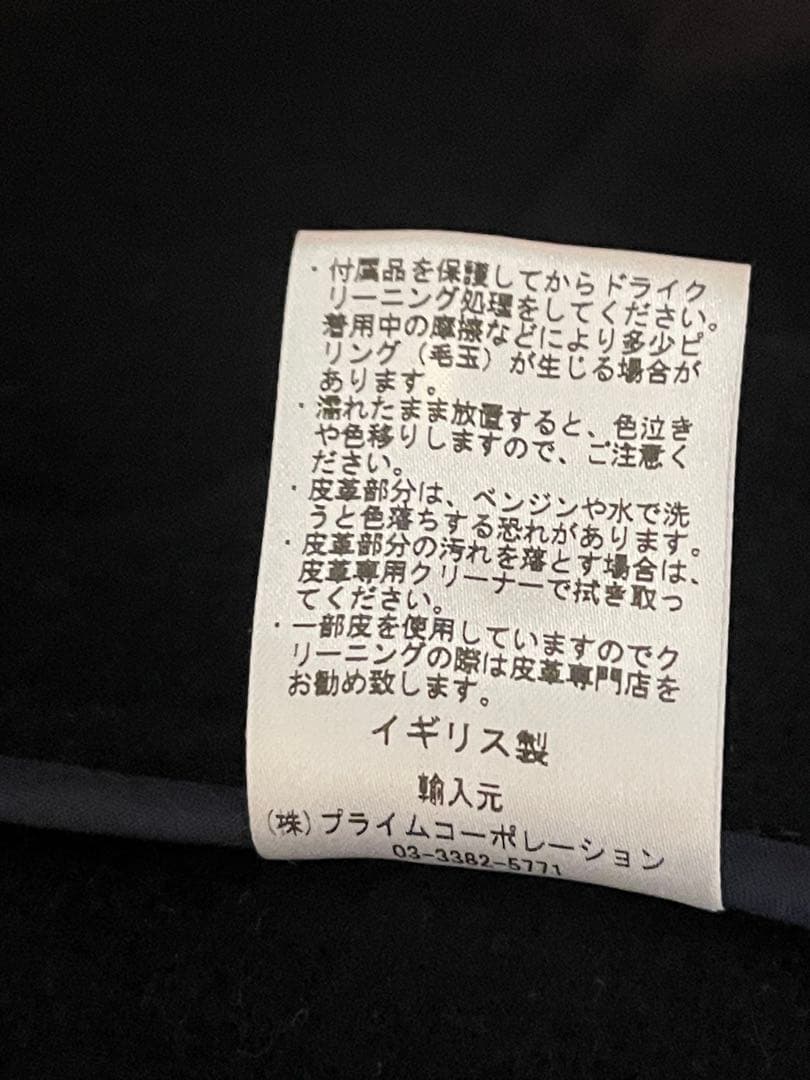 ・付属品を保護してからドライク
リーニング処理をしてください。
着用中の摩擦などにより多少ピ
リング（毛玉）が生じる場合が
あります。
・濡れたまま放置すると、色泣き
や色移りしますので、ご注意く
ださい。
・皮革部分は、ベンジンや水で洗
うと色落ちする恐れがあります。
・皮革部分の汚れを落とす場合は、
皮革専用クリーナーで拭き取っ
てください。
・一部皮を使用していますのでク
リーニングの際は皮革専門店を
お勧め致します。
イギリス製
輸入元
(株)プライムコーポレーション
03-3382-5771